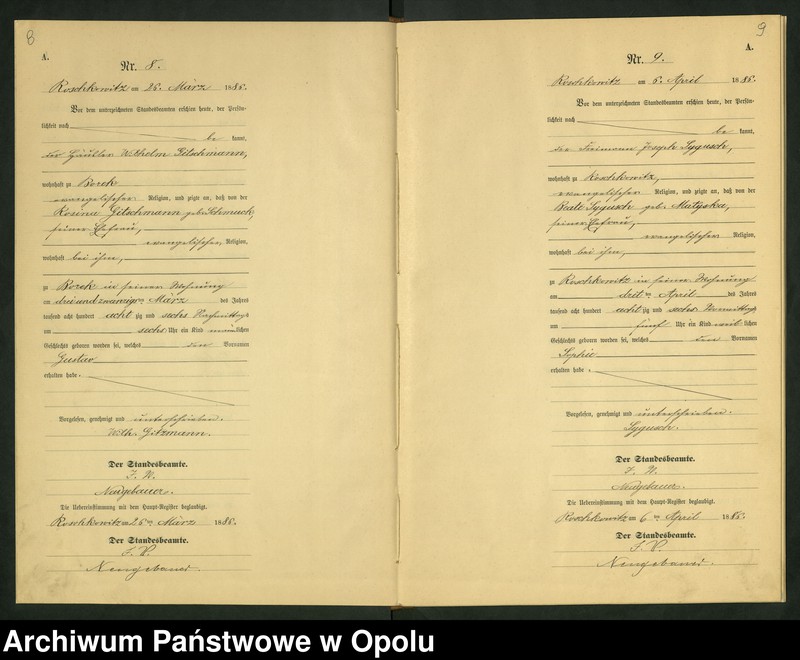 8
A.
Nr. 8.
Roschkowitz am 26. März 1886.
Vor dem unterzeichneten Standesbeamten erschien heute, der Persön-
lichkeit nach
be kannt,
der Häusler Wilhelm Gitschmann,
wohnhaft zu Borek
evangelischer Religion, und zeigte an, daß von der
Rosina Gitschmann geb. Schmuck,
seiner Ehefrau,
evangelischer Religion,
wohnhaft bei ihm,
zu Borek in seiner Wohnung
am drei und zwanzigten März des Jahres
tausend acht hundert acht zig und sechs Nachmittags
um sechs Uhr ein Kind männlichen
Geschlechts geboren worden sei, welches den Vornamen
Gustav
erhalten habe.
Vorgelesen, genehmigt und unterschrieben.
Wilh. Gitzmann.
Der Standesbeamte.
Neugebauer.
Die Uebereinstimmung mit dem Haupt-Register beglaubigt.
Roschkowitz am 26ten März 1886.
Der Standesbeamte.
Neugebauer.
9
A.
Nr. 9.
Roschkowitz am 6. April 1886.
Vor dem unterzeichneten Standesbeamten erschien heute, der Persön-
lichkeit nach
be kannt,
der Freimann Joseph Sygusch,
wohnhaft zu Roschkowitz,
evangelischer Religion, und zeigte an, daß von der
Beate Sygusch geb. Matyska,
seiner Ehefrau,
evangelischer Religion,
wohnhaft bei ihm,
zu Roschkowitz in seiner Wohnung
am drit ten April des Jahres
tausend acht hundert acht zig und sechs Vormittags
um fünf Uhr ein Kind weib lichen
Geschlechts geboren worden sei, welches den Vornamen
Sophie
erhalten habe.
Vorgelesen, genehmigt und unterschrieben.
Sygusch.
Der Standesbeamte.
Neugebauer.
Die Uebereinstimmung mit dem Haupt-Register beglaubigt.
Roschkowitz am 6ten April 1886.
Der Standesbeamte.
Neugebauer.
Archiwum Państwowe w Opolu